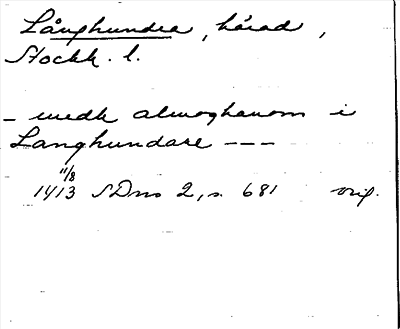 Långhundra, härad,
Stockh. l.
– medh almoghanom i
Langhundare ---
11/8
1413 SDns 2, s. 681 orig.